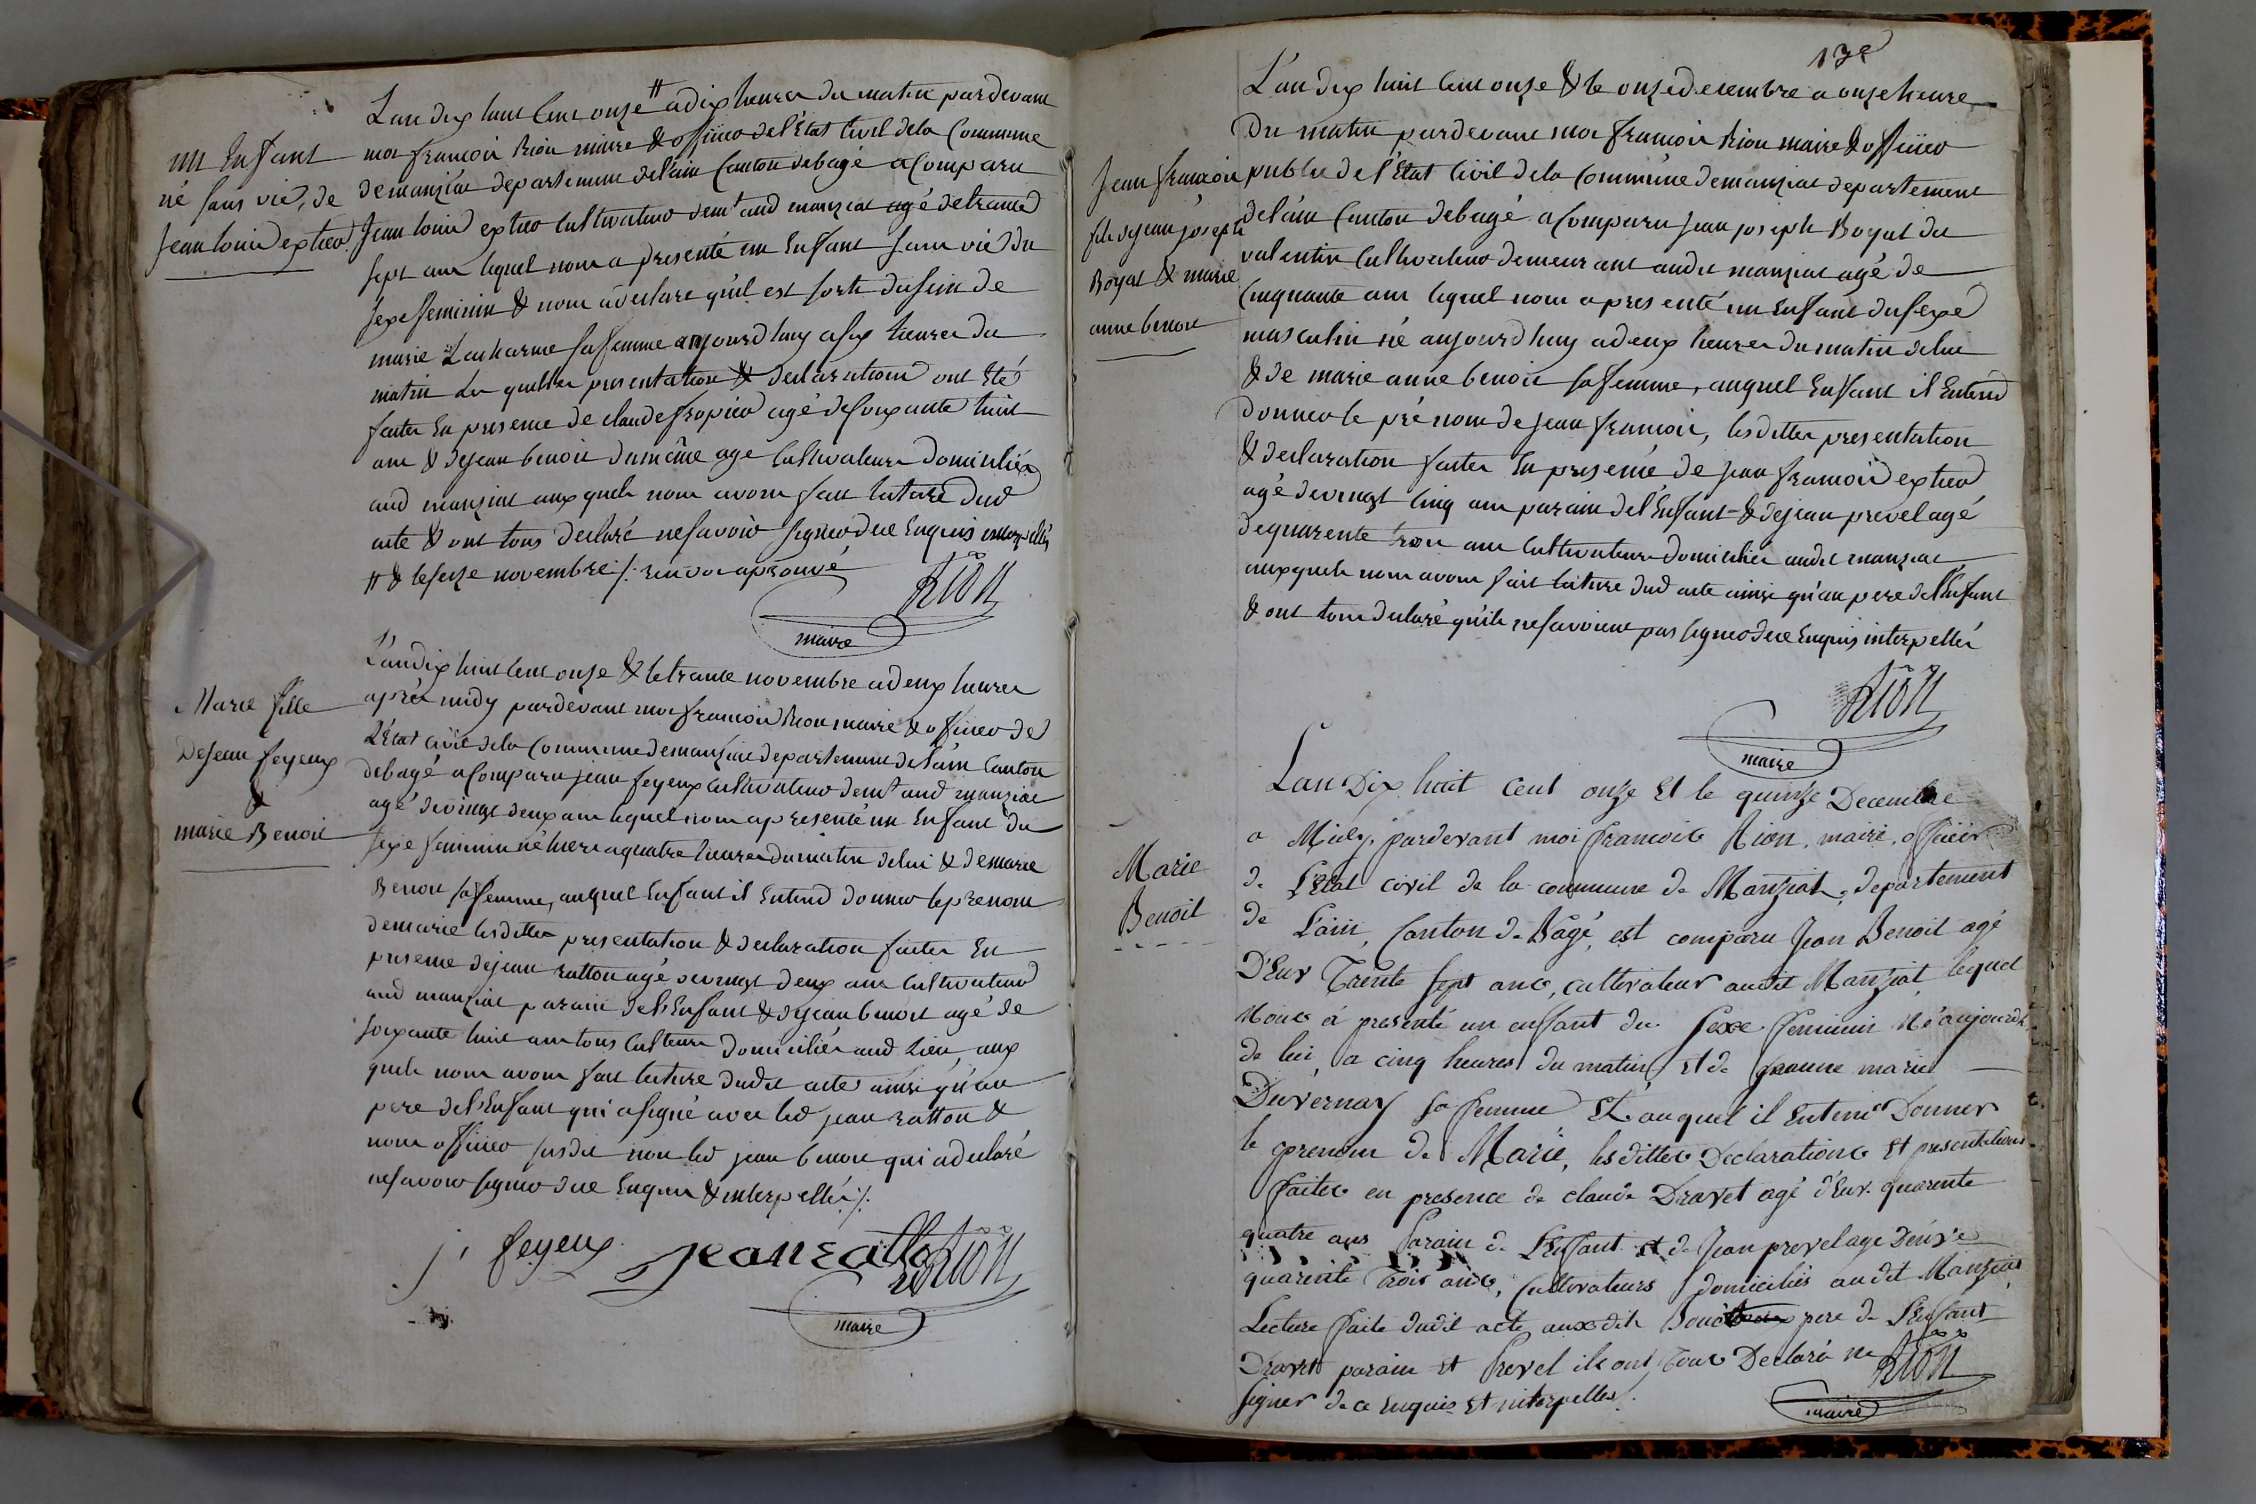 un Enfant
né sans vie, de
Jean louis extier
L'an dix huit cent onze # a dix heures du matin pardevant
moi françois Rion maire & officier de l'Etat Civil de la Commune
de manziat departement de l'ain Canton de bagé a Comparu
Jean louis extier Cultivateur demt aud manziat agé de trante
sept ans lequel nous a presenté un Enfant sans vie du
sexe feminin & nous a declare qu'il est sorti du sein de
marie Lacharme sa femme aujourd huy a six heures du
matin les quelles presentation & declaration ont Eté
faites En presence de claude fropier agé de soixante huit
ans & de jean benoit du même age Cultivateurs domiciliés
aud manziat aux quels nous avons fait lecture dud
acte & ont tous declaré ne savoir signer de ce Enquis interpellés
# & le seize novembre /: renvoi aprouvé
Rion
maire
Marie fille
De Jean feyeux
&
marie Benoit
L'an dix huit cent onze & le trante novembre a deux heures
après midy pardevant moi françois Rion maire & officier de
l'Etat civil de la Commune de manziat departement de l'ain Canton
de bagé a Comparu jean feyeux cultivateur demt aud manziat
agé de vingt deux ans lequel nous a presenté un Enfant du
sexe feminin né hiere a quatre heures du matin de lui & de marie
Benoit sa femme, auquel Enfant il Entend donner le prenom
de marie lesdittes presentation & declaration faites En
presence de jean ratton agé de vingt deux ans Cultivateur
aud manziat parain de l'Enfant & de jean benoit agé de
soixante huit ans tous Culteurs domiciliés aud Lieu, aux
quels nous avons fait lecture dudit acte ainsi qu'au
pere de l'Enfant qui a signé avec led jean ratton &
nous officier susdit non led jean benoit qui a declaré
ne savoir signer de ce Enquis & interpellés /.
j, feyeux jean ratto Rion
maire
13e
Jean françois
fils de jean joseph
Boyat & marie
anne benoit
L'an dix huit cent onze & le onze decembre a onze heure
du matin pardevant moi françois Rion maire & officier
public de l'Etat Civil de la Commune de manziat departement
de l'ain Canton de bagé a Comparu Jean joseph Boyat du
valentin Cultivateur demeurant audit manziat agé de
Cinquante ans lequel nous a presenté un Enfant du sexe
masculin né aujourd huy a deux heures du matin de lui
& de marie anne benoit sa femme, auquel Enfant il Entend
donner le pré nom de jean françois, lesdittes presentation
& declaration faites En presence de jean françois extier
agé de vingt Cinq ans parain de l'Enfant & de jean prevel agé
de quarente trois ans Cultivateurs domiciliés audit manziat
auxquels nous avons fait lecture dud acte ainsi qu'au pere de l'Enfant
& ont tous declaré qu'ils ne savoient pas signer de ce Enquis interpellés
Rion
maire
Marie
Benoit
L'an Dix huit cent onze Et le quinze Decembre
a Midy, pardevant moi françois Rion, maire, officier
de L'Etat civil de la commune de Manziat, departement
de L'ain, Canton de Bagé, est comparu Jean Benoit agé
D'Env Trente sept ans, cultivateur audit Manziat, lequel
Nous à presenté un enfant du sexe feminin Né aujourdh
de lui, a cinq heures du matin, Et de jeanne marie
Duvernay sa femme Et auquel il Entend Donner
le prenom de Marie, lesdittes Declarations Et presentations
faites en presence de claude Dravet agé d'Env. quarente
quatre ans Parain de L'Enfant et de Jean prevel age D'env
quarente Trois ans, Cultivateurs domiciliés audit Manziat
Lecture faite dudit acte auxdits Benoit pere de L'Enfant
Dravet parain et Prevel ils ont Tous Declaré ne
signer de ce Enquis Et interpelles.
Rion
maire